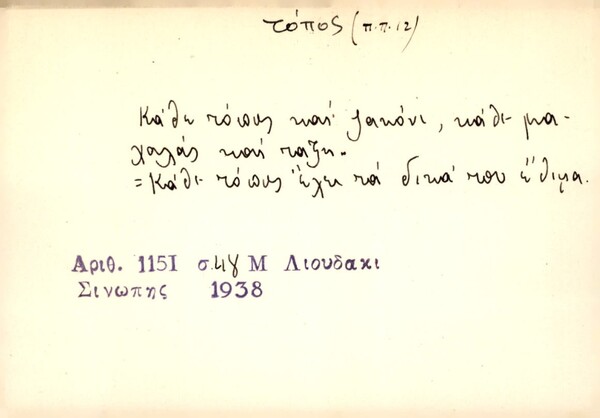 τόπος (π.π. 12)
Κάθε τόπος καί ζακόνι, κάθε μα-
χαλάς καί ταξη.
= Κάθε τόπος ἔχει τά δικά του ἔθιμα.
Αριθ. 1151 σ. 48 Μ Λιουδακι
Σινωπης 1938